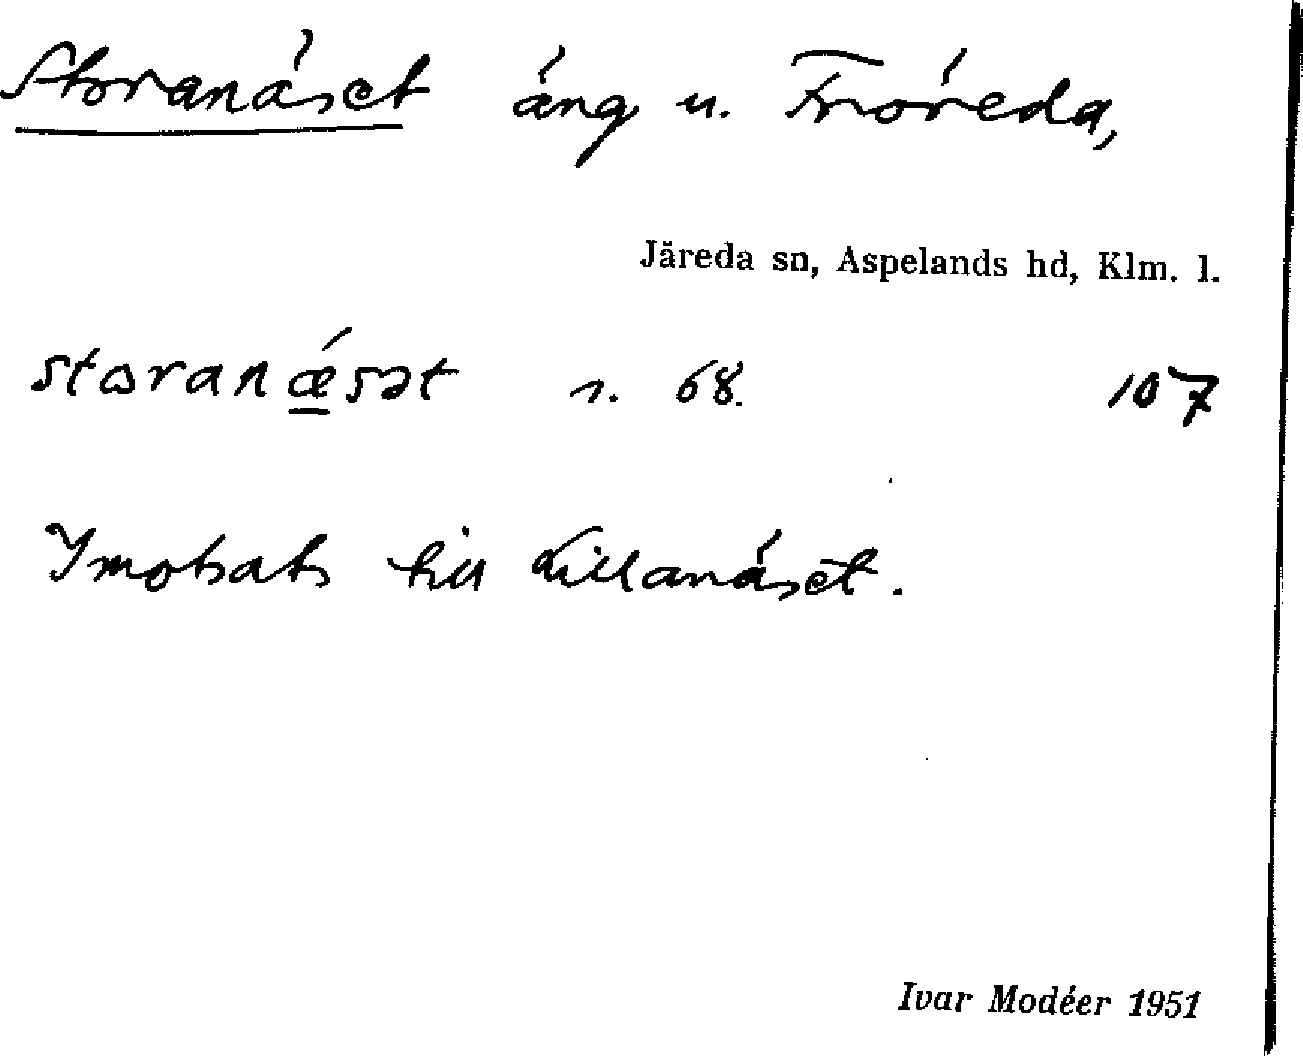 Storanäset äng u. Fröreda,
Järeda sn, Aspelands hd, Klm. l.
storanǽsət s. 68. 107
I motsats till Lillanäset.
Ivar Modéer 1951